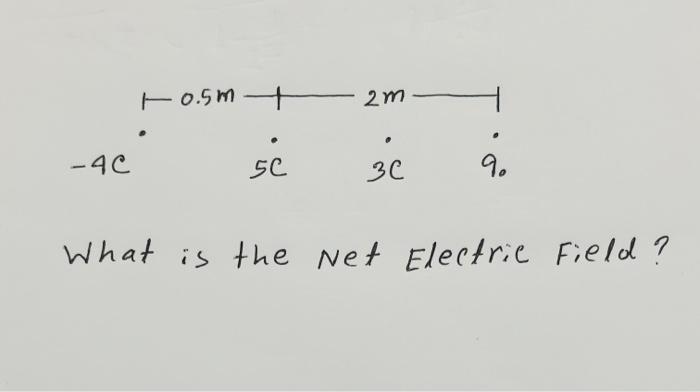 0.5m 2m
-4C 5C 3C q₀
What is the Net Electric Field?